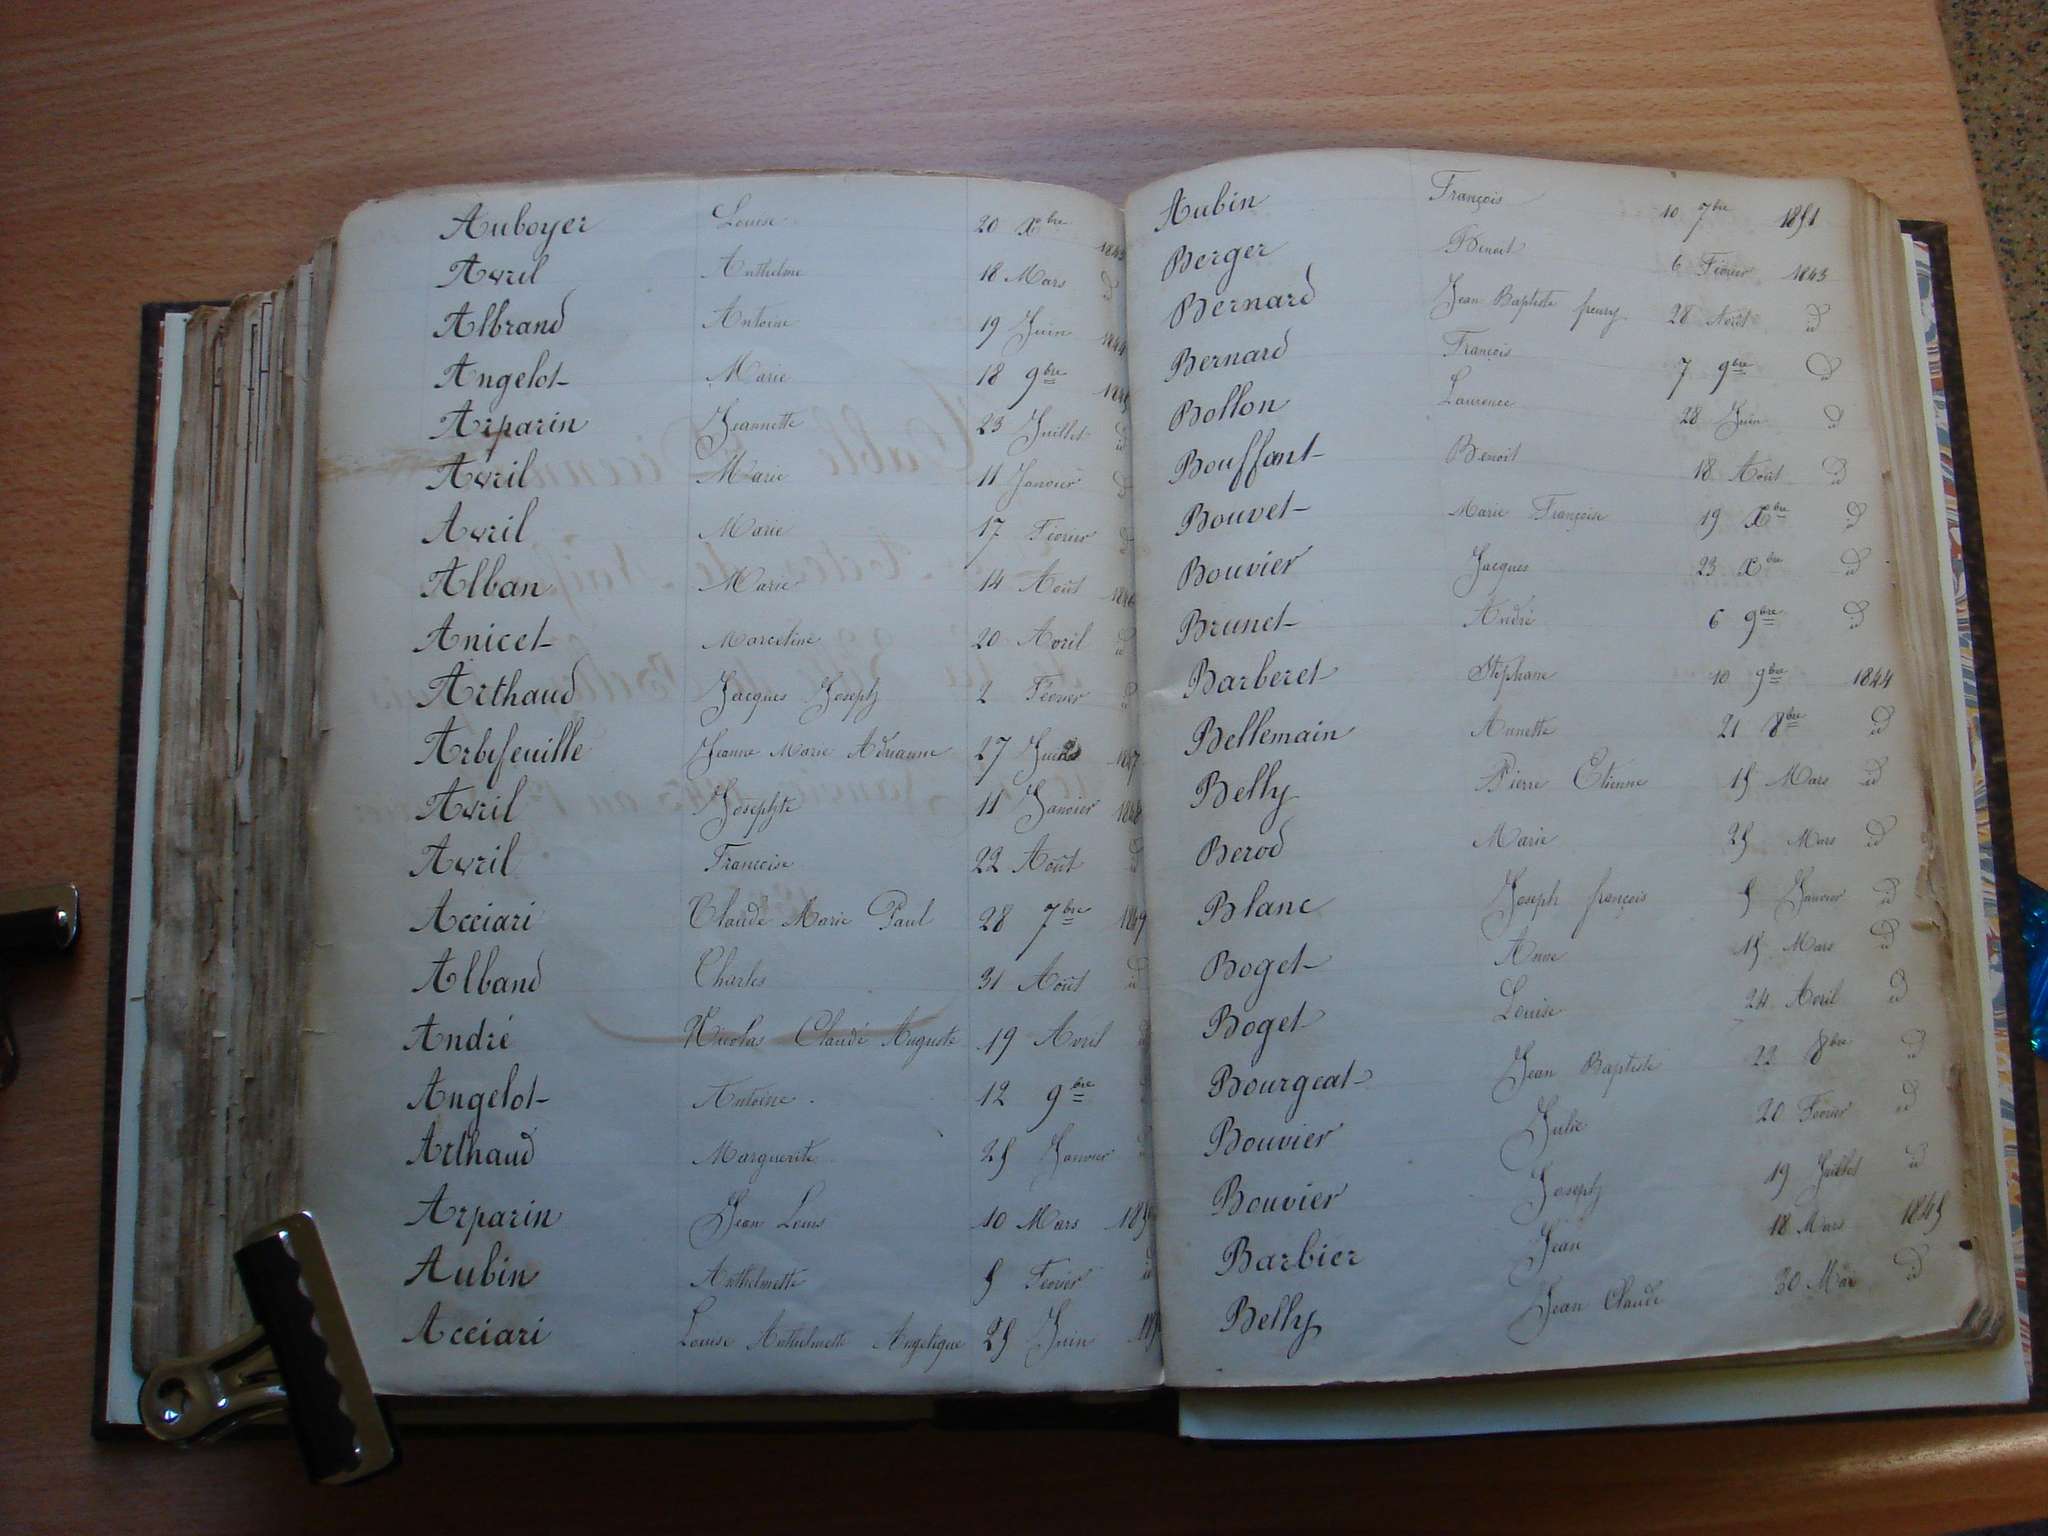 Auboyer Louise 20 Xbre 1843
Avril Anthelme 18 Mars id
Albrand Antoine 19 Juin 1844
Angelot Marie 18 9bre 1845
Arparin Jeannette 23 Juillet id
Avril Marie 11 Janvier id
Avril Marie 17 Février id
Alban Marie 14 Août 1846
Anicet Marceline 20 Avril id
Arthaud Jacques Joseph 2 Février id
Arbefeuille Jeanne Marie Adrianne 27 1847
Avril Josephte 11 Janvier 1848
Avril Francoise 22 Août id
Acciari Claude Marie Paul 28 7bre 1849
Alband Charles 31 Août id
André Nicolas Claude Auguste 19 Avril id
Angelot Antoine 12 9bre
Arthaud Marguerite 25 Janvier
Arparin Jean Louis 10 Mars
Aubin Anthelmette 5 Fevrier id
Acciari Louise Anthelmette Angelique 25 Juin
Aubin François 10 7bre 1851
Berger Benoit 6 Février 1843
Bernard Jean Baptiste fleury 28 Août id
Bernard François 7 9bre id
Bollon Laurence 28 Juin id
Bouffant Benoit 18 Août id
Bouvet Marie Françoise 19 Xbre id
Bouvier Jacques 23 Xbre id
Brunet André 6 9bre id
Barberet Stéphane 10 9bre 1844
Bellemain Annette 21 8bre id
Belly Pierre Etienne 15 Mars id
Berod Marie 25 Mars id
Blanc Joseph françois 5 Janvier id
Boget Anne 15 Mars id
Boget Louise 24 Avril id
Bourgeat Jean Baptiste 22 8bre id
Bouvier Julie 20 Février id
Bouvier Joseph 19 Juillet id
Barbier Jean 18 Mars 1845
Belly Jean Claude 30 Mai id